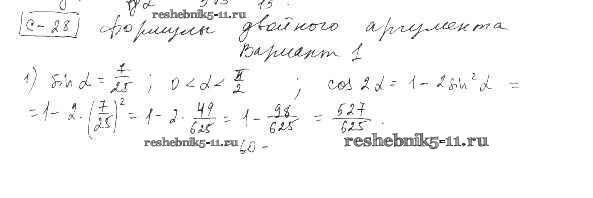 reshebnik5-11.ru
С-28 Формулы двойного аргумента
Вариант 1
1) sin α = 7/25 ; 0 < α < π/2 ; cos 2α = 1 - 2 sin²α =
= 1 - 2 · (7/25)² = 1 - 2 · 49/625 = 1 - 98/625 = 527/625 .
reshebnik5-11.ru
reshebnik5-11.ru